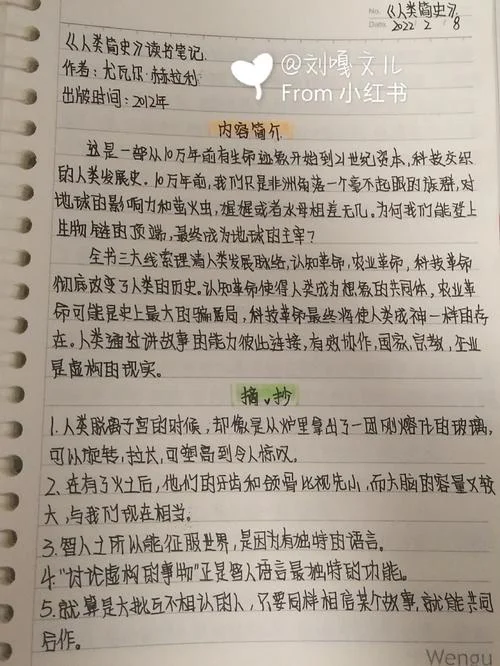 No. 《人类简史》
Date. 2022 2 8
《人类简史》读书笔记
作者：尤瓦尔·赫拉利
出版时间：2012年
@刘嘎文儿
From 小红书
内容简介
这是一部从10万年前有生命迹象开始到21世纪资本，科技交织
的人类发展史．10万年前，我们只是非洲角落一个毫不起眼的族群，对
地球的影响力和萤火虫，猩猩或者水母相差无几。为何我们能登上
生物链的顶端，最终成为地球的主宰？
全书三大线索理清人类发展脉络，认知革命，农业革命，科技革命
彻底改变了人类的历史。认知革命使得人类成为想象的共同体，农业革
命可能是史上最大的骗局，科技革命最终将使人类成神一样的存
在。人类通过讲故事的能力彼此连接，有效协作，国家，宗教，企业
是虚构的现实。
摘、抄
1．人类脱离子宫的时候，却像是从炉里拿出了一团刚熔化的玻璃，
可以旋转，拉长，可塑高到令人惊叹。
2、在有了火土后，他们的牙齿和颌骨比视先小，而大脑的容量又较
大，与我们现在相当。
3．智人土所以能征服世界，是因为有独特的语言。
4．“讨论虚构的事物”正是智人语言最独特的功能。
5．就算是大批互不相认的人，只要同样相信某个故事，就能共同
合作。
Wengu